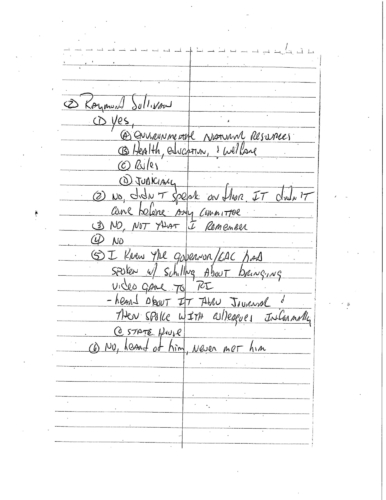 ② Raymond Sullivan
① Yes,
Ⓐ environmental Natural Resources
Ⓑ Health, education, & welfare
Ⓒ Rules
Ⓓ Judiciary
② No, didn't speak on floor. IT didn't
come before any committee
③ NO, NOT THAT I Remember
④ NO
⑤ I knew the governor/EDC had
spoken w/ Schilling About bringing
video game TO RI
- heard about IT Thru Journal &
Then spoke with colleagues Informally
@ STATE House
⑥ NO, heard of him, never met him